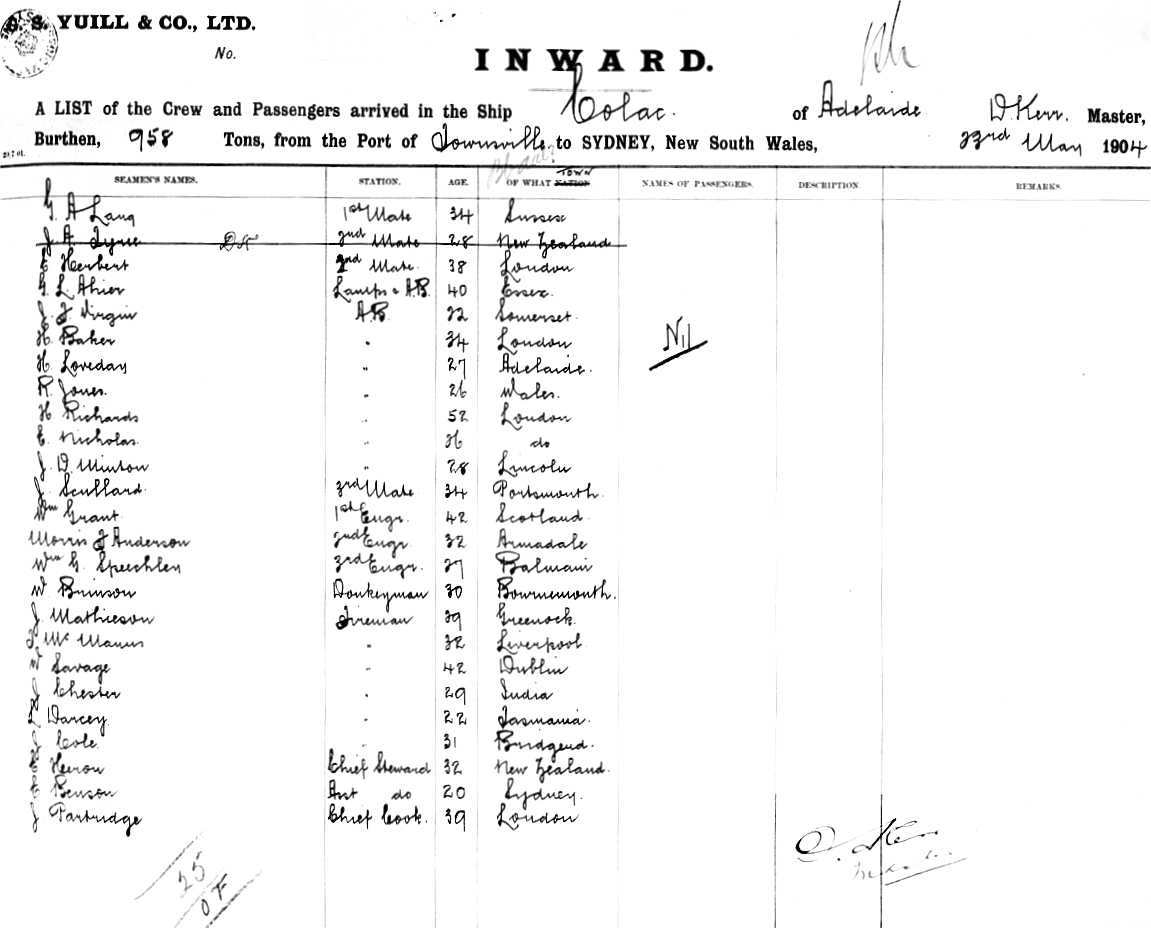 G. S. YUILL & CO., LTD.
No.
INWARD.
A LIST of the Crew and Passengers arrived in the Ship Colac. of Adelaide D Kerr. Master,
Burthen, 958 Tons, from the Port of Townsville to SYDNEY, New South Wales, 23rd May 1904
SEAMEN'S NAMES. STATION. AGE. OF WHAT NATION TOWN NAMES OF PASSENGERS. DESCRIPTION REMARKS.
G. A Lang 1st Mate 34 Sussex
J. A. Tyrie 2nd Mate 28 New Zealand
E Herbert 2nd Mate. 38 London
G. L Ahier Lamps & A.B. 40 Essex.
J. J Virgin A.B. 22 Somerset.
H. Baker " 34 London
Nil
H. Loveday " 27 Adelaide.
R. Jones. " 26 Wales.
H Richards " 52 London
E. Nicholas. " 36 do
J. D. Minton " 28 Lincoln
J. Scullard. 3rd Mate 34 Portsmouth.
Wm Grant. 1st Engr. 42 Scotland.
Morris J Anderson 2nd Engr 32 Armadale
Wm G. Speechley 3rd Engr. 27 Balmain
W Brinson Donkeyman 30 Bournemouth.
J. Mathieson Fireman 39 Greenock.
J. McManus " 32 Liverpool
W Savage " 42 Dublin
J Chester " 29 India
Darcey. " 22 Tasmania.
J Cole. " 31 Bridgend.
E Heron Chief Steward 32 New Zealand.
E Benson Asst do 20 Sydney.
J Partridge Chief Cook. 39 London
D. Kerr
Master
25
O F